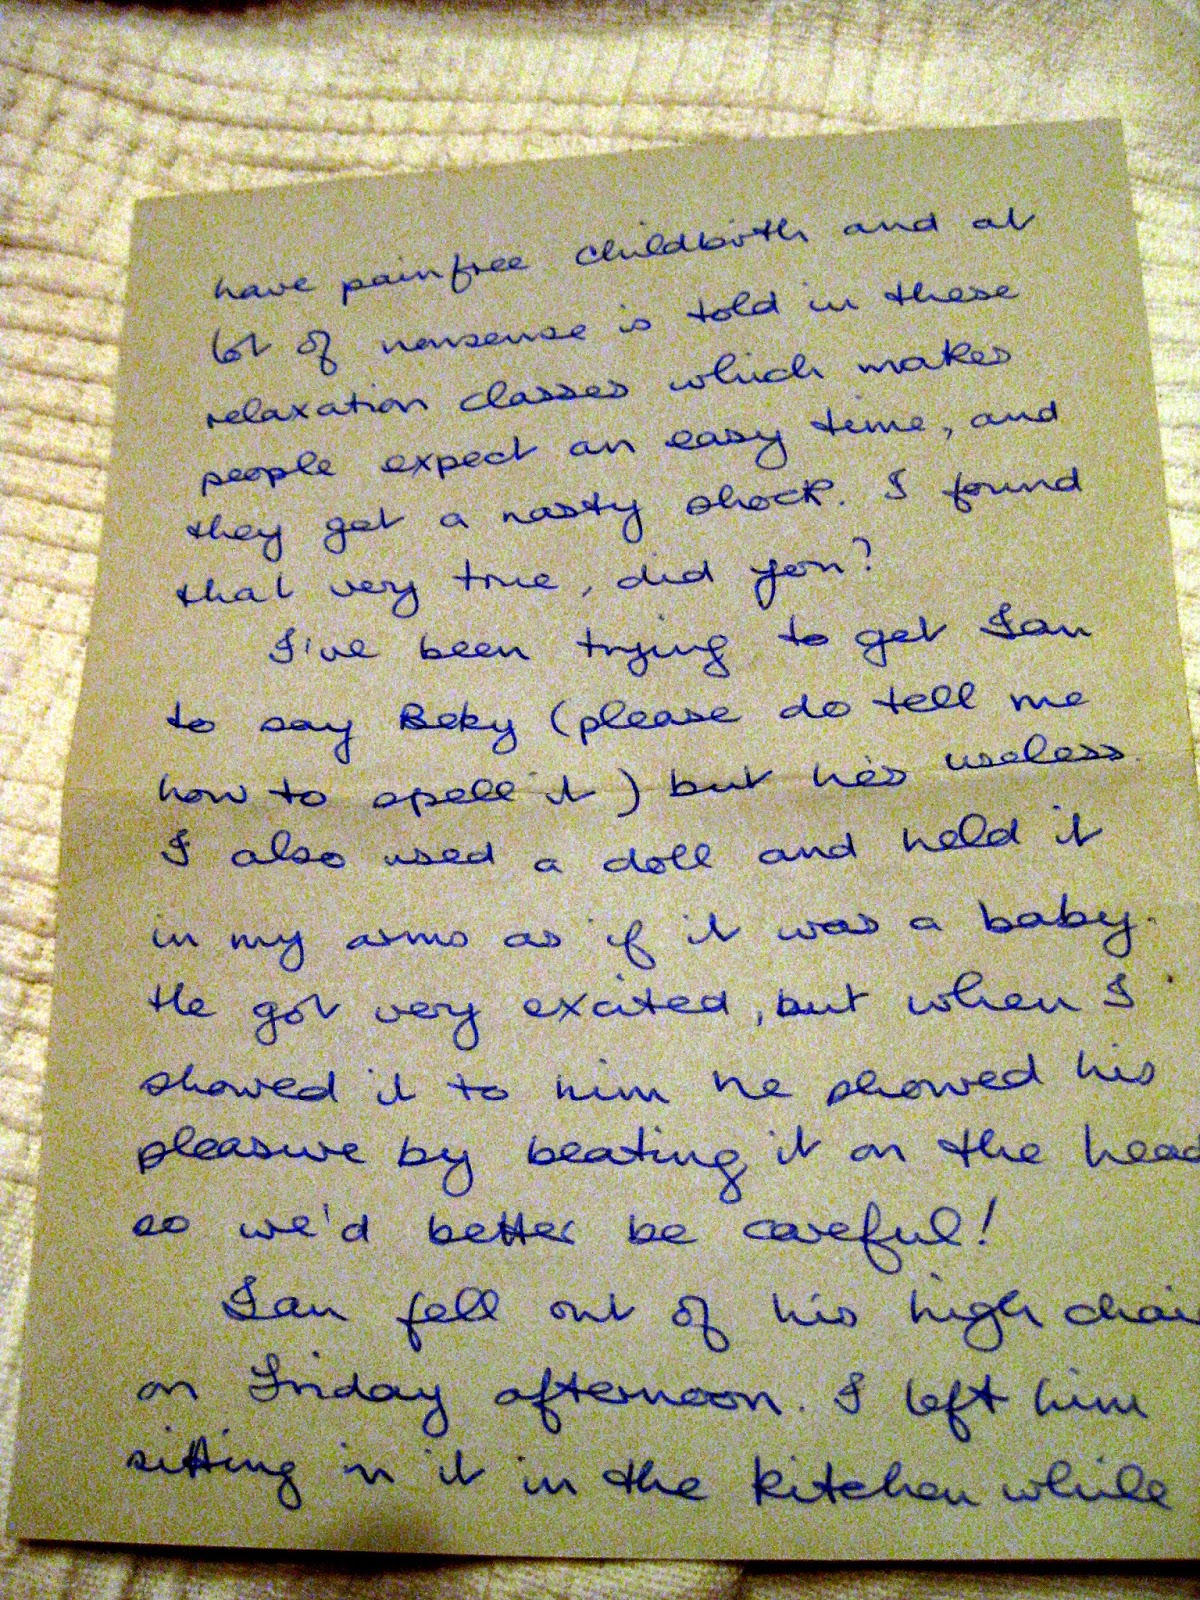 have painfree childbirth and at
lot of nonsense is told in these
relaxation classes which makes
people expect an easy time, and
they get a nasty shock. I found
that very true, did you?
I've been trying to get Ian
to say Beky (please do tell me
how to spell it) but he's useless.
I also used a doll and held it
in my arms as if it was a baby.
He got very excited, but when I
showed it to him he showed his
pleasure by beating it on the head
so we'd better be careful!
Ian fell out of his high chai
on Friday afternoon. I left him
sitting in it in the kitchen while